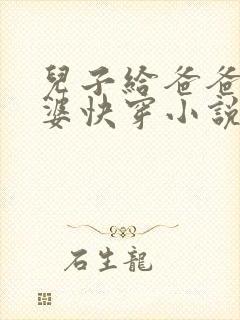 兒子給爸爸
婆快穿小說
石生龍